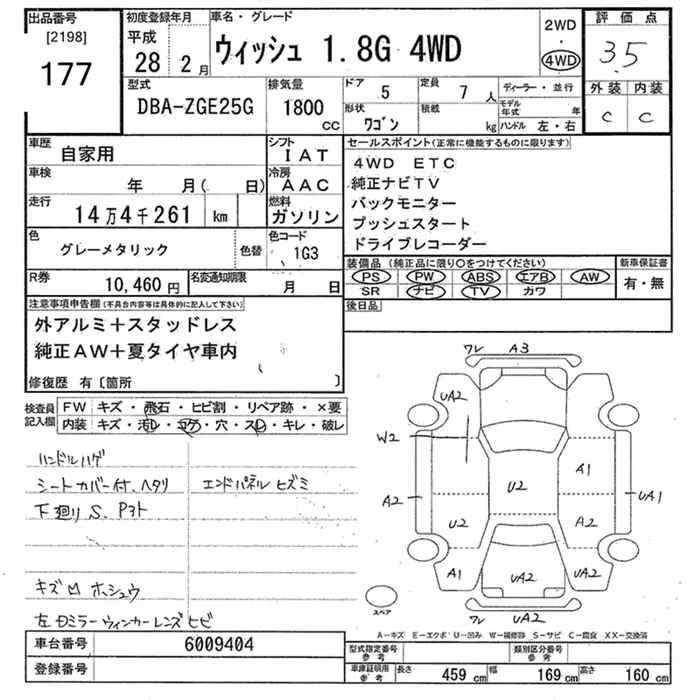 出品番号
[2198]
177
初度登録年月
平成
28 2 月
車名・グレード
ウィッシュ 1.8G 4WD
2WD
・
4WD
評価点
3.5
外装 内装
C C
型式
DBA-ZGE25G
排気量
1800
CC
ドア 5
定員 7 人
形状 ワゴン
積載 kg
ディーラー・並行
モデル年式 年
ハンドル 左・右
車歴 自家用
シフト IAT
車検 年 月( 日)
冷房 AAC
走行 14万4千261 km
燃料 ガソリン
色 グレーメタリック
色替
色コード 1G3
R券 10,460円
名変通知期限 月 日
セールスポイント(正常に機能するものに限ります)
4WD ETC
純正ナビTV
バックモニター
プッシュスタート
ドライブレコーダー
装備品 (純正品に限り○をつけてください)
PS PW ABS エアB AW
SR ナビ TV カワ
新車保証書
有・無
後日品
注意事項申告欄(不具合内容等は具体的に記入して下さい)
外アルミ+スタッドレス
純正AW+夏タイヤ車内
修復歴 有〔箇所 〕
検査員記入欄
FW キズ・飛石・ヒビ割・リペア跡・×要
内装 キズ・汚レ・コゲ・穴・スレ・キレ・破レ
ハンドルハゲ
シートカバー付、ヘタリ エンドパネルヒズミ
下廻りS.
キズ凹 ホシュウ
左ドミラーウィンカーレンズヒビ
ワレ A3
UA2
W2
A1
A2
U2
UA1
U2
A2
A1
UA2
UA2
ワレ UA2
スペア
A-キズ E-エクボ U-凹み W-補修跡 S-サビ C-腐食 XX-交換済
車台番号 6009404
登録番号
型式指定番号 参考
類別区分番号 参考
車庫証明用 参考
長さ 459 cm 幅 169 cm 高さ 160 cm